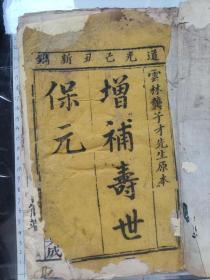 道光己丑新鐫
雲林龔子才先生原本
增補壽世
保元